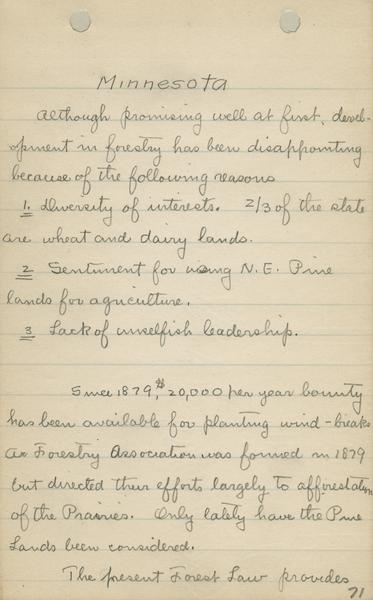 Minnesota
Although promising well at first, devel-
opment in forestry has been disappointing
because of the following reasons
1. Diversity of interests. 2/3 of the state
are wheat and dairy lands.
2 Sentiment for using N.E. Pine
lands for agriculture.
3 Lack of unselfish leadership.
Since 1879, $20,000 per year bounty
has been available for planting wind-breaks
An Forestry Association was formed in 1879
but directed their efforts largely to afforestation
of the Prairies. Only lately have the Pine
Lands been considered.
The present Forest Law provides
71